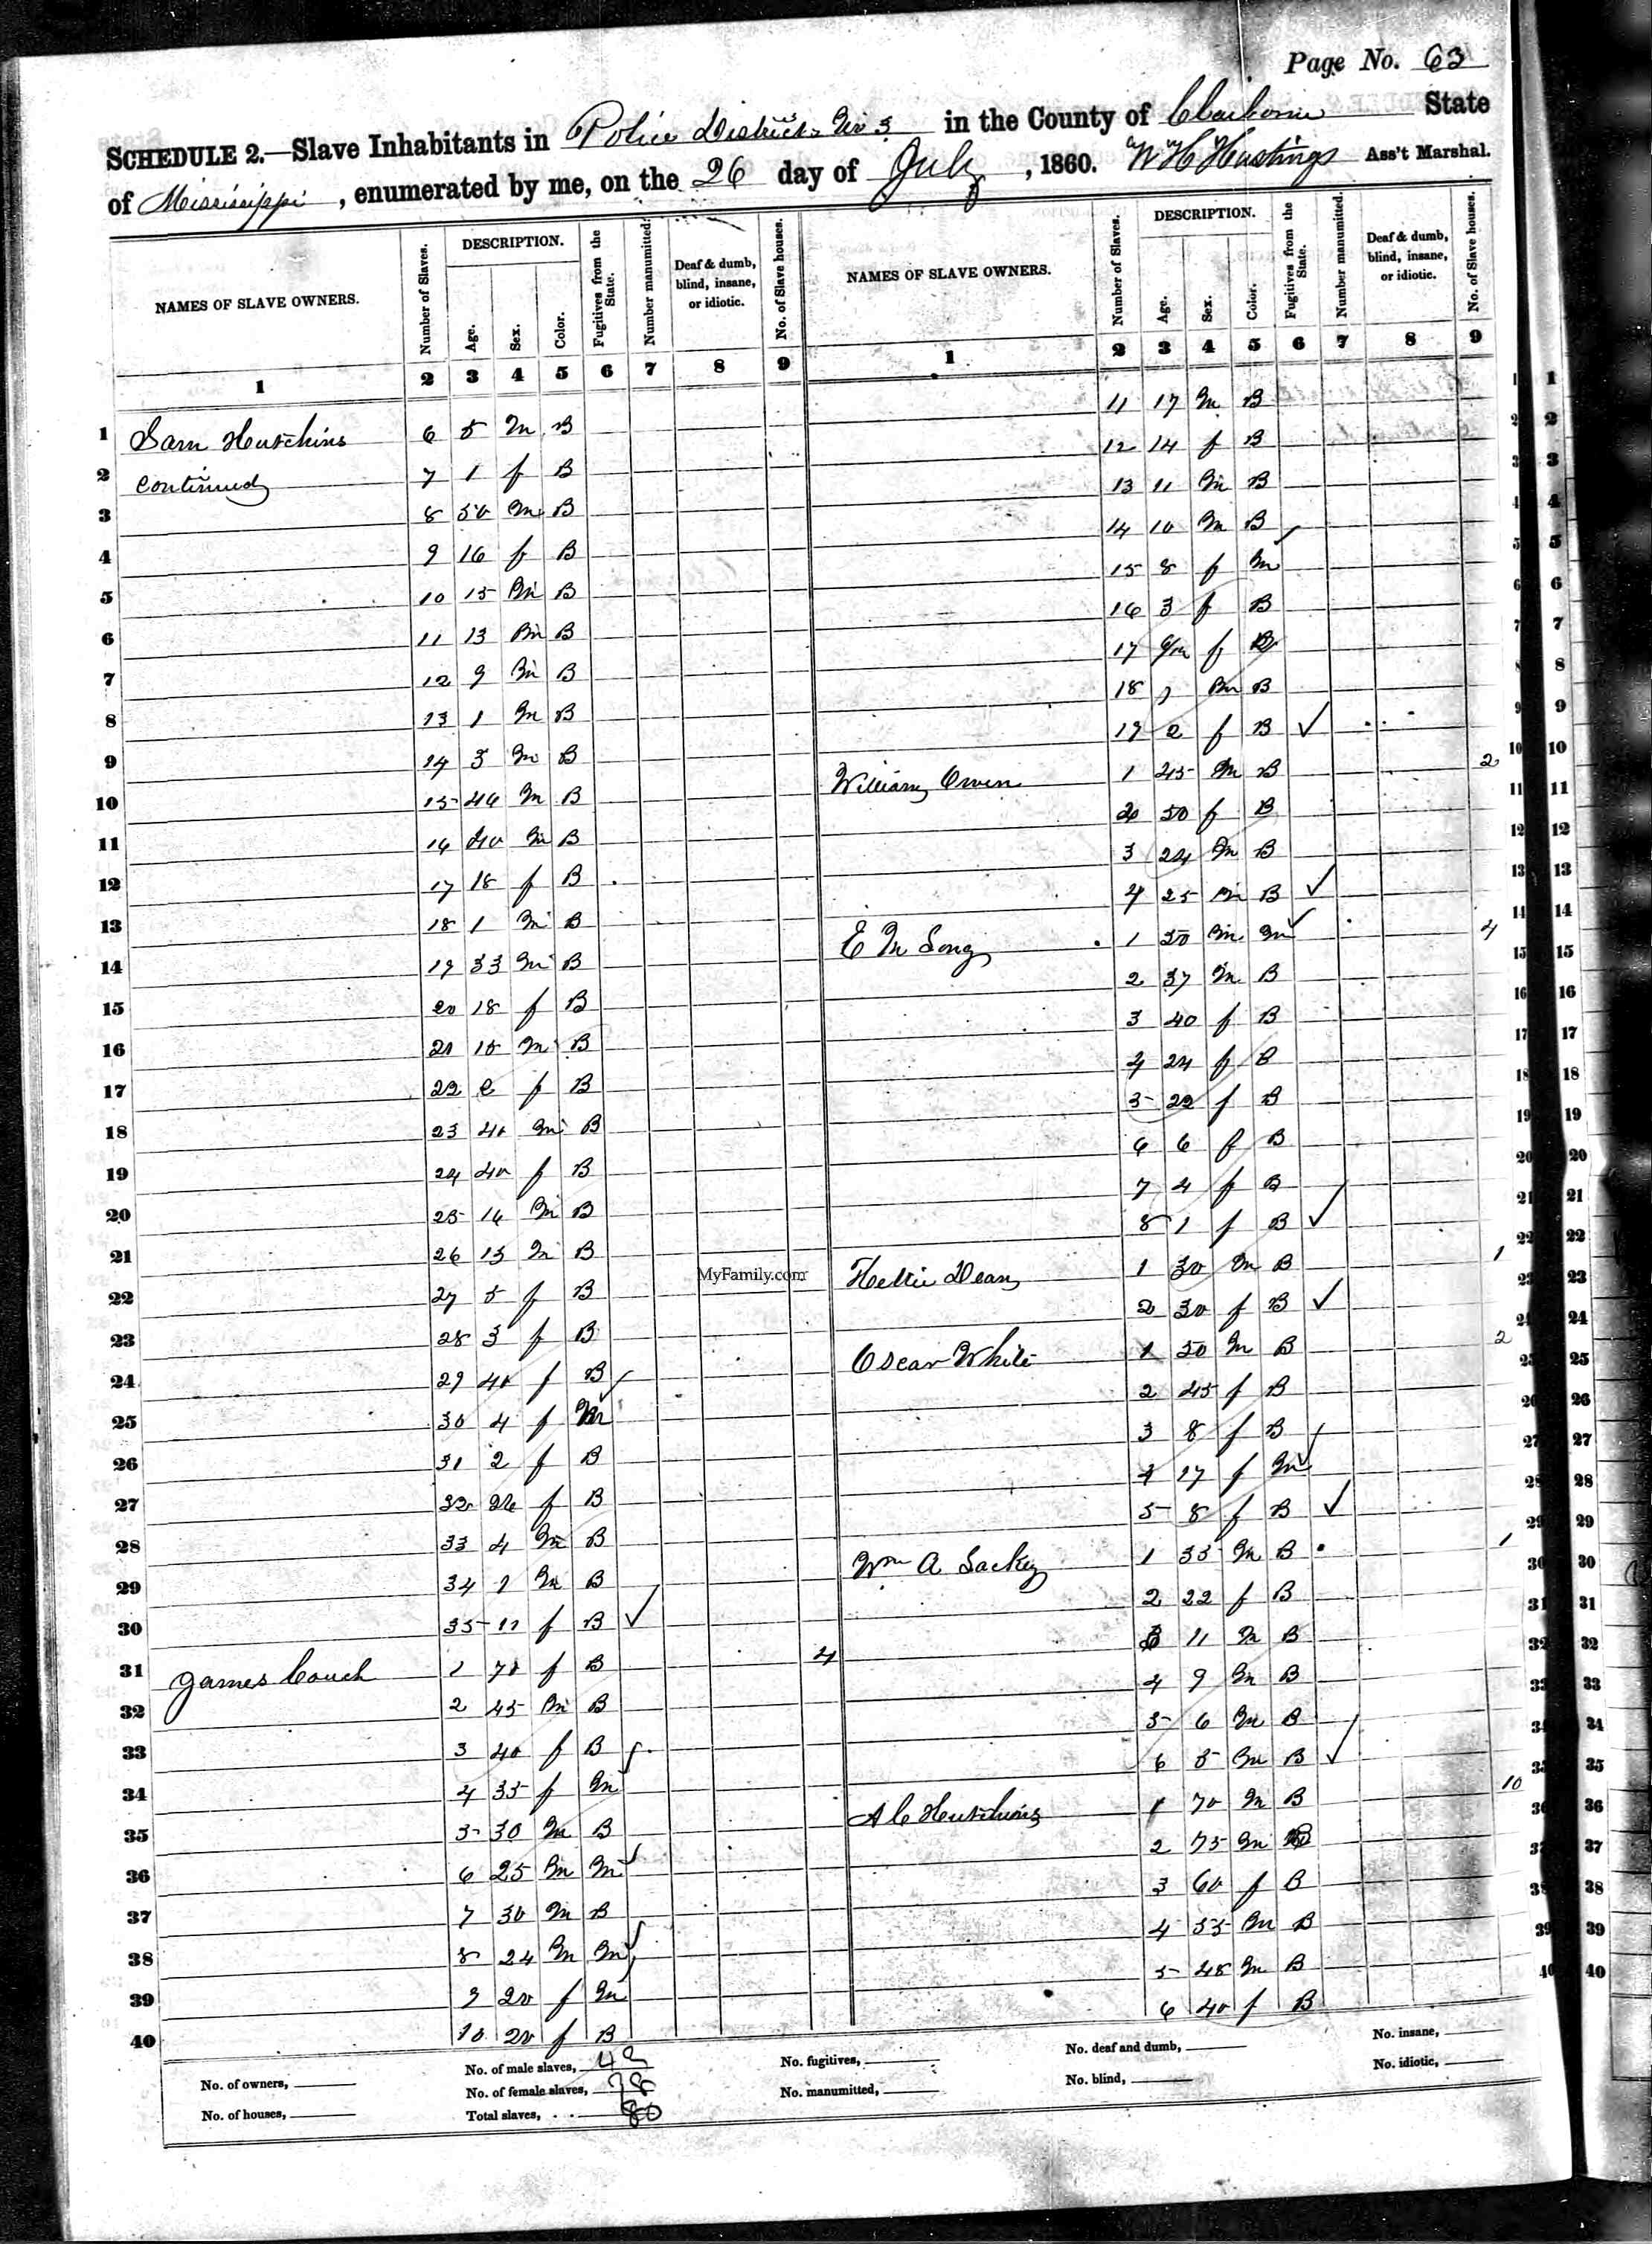 Page No. 63
SCHEDULE 2.—Slave Inhabitants in Police District No 3 in the County of Claiborne State
of Mississippi, enumerated by me, on the 26 day of July, 1860. W H Hastings Ass't Marshal.
NAMES OF SLAVE OWNERS. Number of Slaves. DESCRIPTION. Age. Sex. Color. Fugitives from the State. Number manumitted. Deaf & dumb, blind, insane, or idiotic. No. of Slave houses.
1 2 3 4 5 6 7 8 9
1 Sam Hutchins 6 5 m B
2 continued 7 1 f B
3 8 50 m B
4 9 16 f B
5 10 15 m B
6 11 13 m B
7 12 9 m B
8 13 1 m B
9 14 3 m B
10 15 46 m B
11 16 40 m B
12 17 18 f B
13 18 1 m B
14 19 33 m B
15 20 18 f B
16 21 15 m B
17 22 2 f B
18 23 40 m B
19 24 40 f B
20 25 16 m B
21 26 13 m B
22 27 5 f B
23 28 3 f B
24 29 40 f B
25 30 4 f M
26 31 2 f B
27 32 26 f B
28 33 4 m B
29 34 1 m B
30 35 11 f B ✓
31 James Couch 1 70 f B 4
32 2 45 m B
33 3 40 f B
34 4 35 f m
35 5 30 m B
36 6 25 m m
37 7 30 m B
38 8 24 m m
39 9 20 f m
40 10 20 f B
NAMES OF SLAVE OWNERS. Number of Slaves. DESCRIPTION. Age. Sex. Color. Fugitives from the State. Number manumitted. Deaf & dumb, blind, insane, or idiotic. No. of Slave houses.
1 2 3 4 5 6 7 8 9
11 17 m B 1
12 14 f B 2
13 11 m B 3
14 10 m B 4
15 8 f m 5
16 3 f B 6
17 9/12 f B 7
18 m B 8
19 2 f B ✓ 9
William Owen 1 45 m B 2 10
2 50 f B 11
3 24 m B 12
4 25 m B ✓ 13
E M Long 1 50 m m 4 14
2 37 m B 15
3 40 f B 16
4 24 f B 17
5 22 f B 18
6 6 f B 19
7 4 f B 20
8 1 f B ✓ 21
Hettie Dean 1 30 m B 1 22
2 30 f B ✓ 23
Oscar White 1 50 m B 2 24
2 45 f B 25
3 8 f B 26
4 17 f m 27
5 8 f B ✓ 28
Wm A Lackey 1 35 m B 1 29
2 22 f B 30
3 11 m B 31
4 9 m B 32
5 6 m B 33
6 5 m B ✓ 34
A C Hutchins 1 70 m B 10 35
2 75 m B 36
3 60 f B 37
4 55 m B 38
5 48 m B 39
6 40 f B 40
MyFamily.com
No. of owners, No. of male slaves, 42 No. fugitives, No. deaf and dumb, No. insane,
No. of houses, No. of female slaves, 38 No. manumitted, No. blind, No. idiotic,
Total slaves, 80